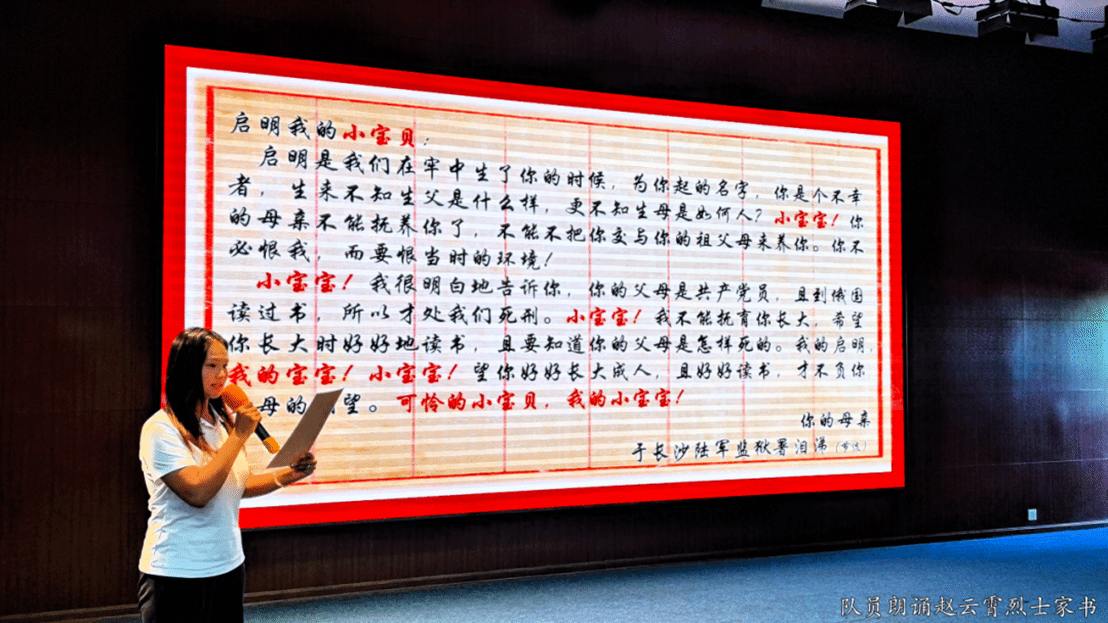 启明我的小宝贝：
启明是我们在牢中生了你的时候，为你起的名字，你是个不幸
者，生来不知生父是什么样，更不知生母是如何人？小宝宝！你
的母亲不能抚养你了，不能不把你交与你的祖父母来养你。你不
必恨我，而要恨当时的环境！
小宝宝！我很明白地告诉你，你的父母是共产党员，且到俄国
读过书，所以才处我们死刑。小宝宝！我不能抚育你长大，希望
你长大时好好地读书，且要知道你的父母是怎样死的。我的启明，
我的宝宝！小宝宝！望你好好长大成人，且好好读书，才不负你
母的望。可怜的小宝贝，我的小宝宝！
你的母亲
于长沙陆军监狱署泪涕（节选）
队员朗诵赵云霄烈士家书